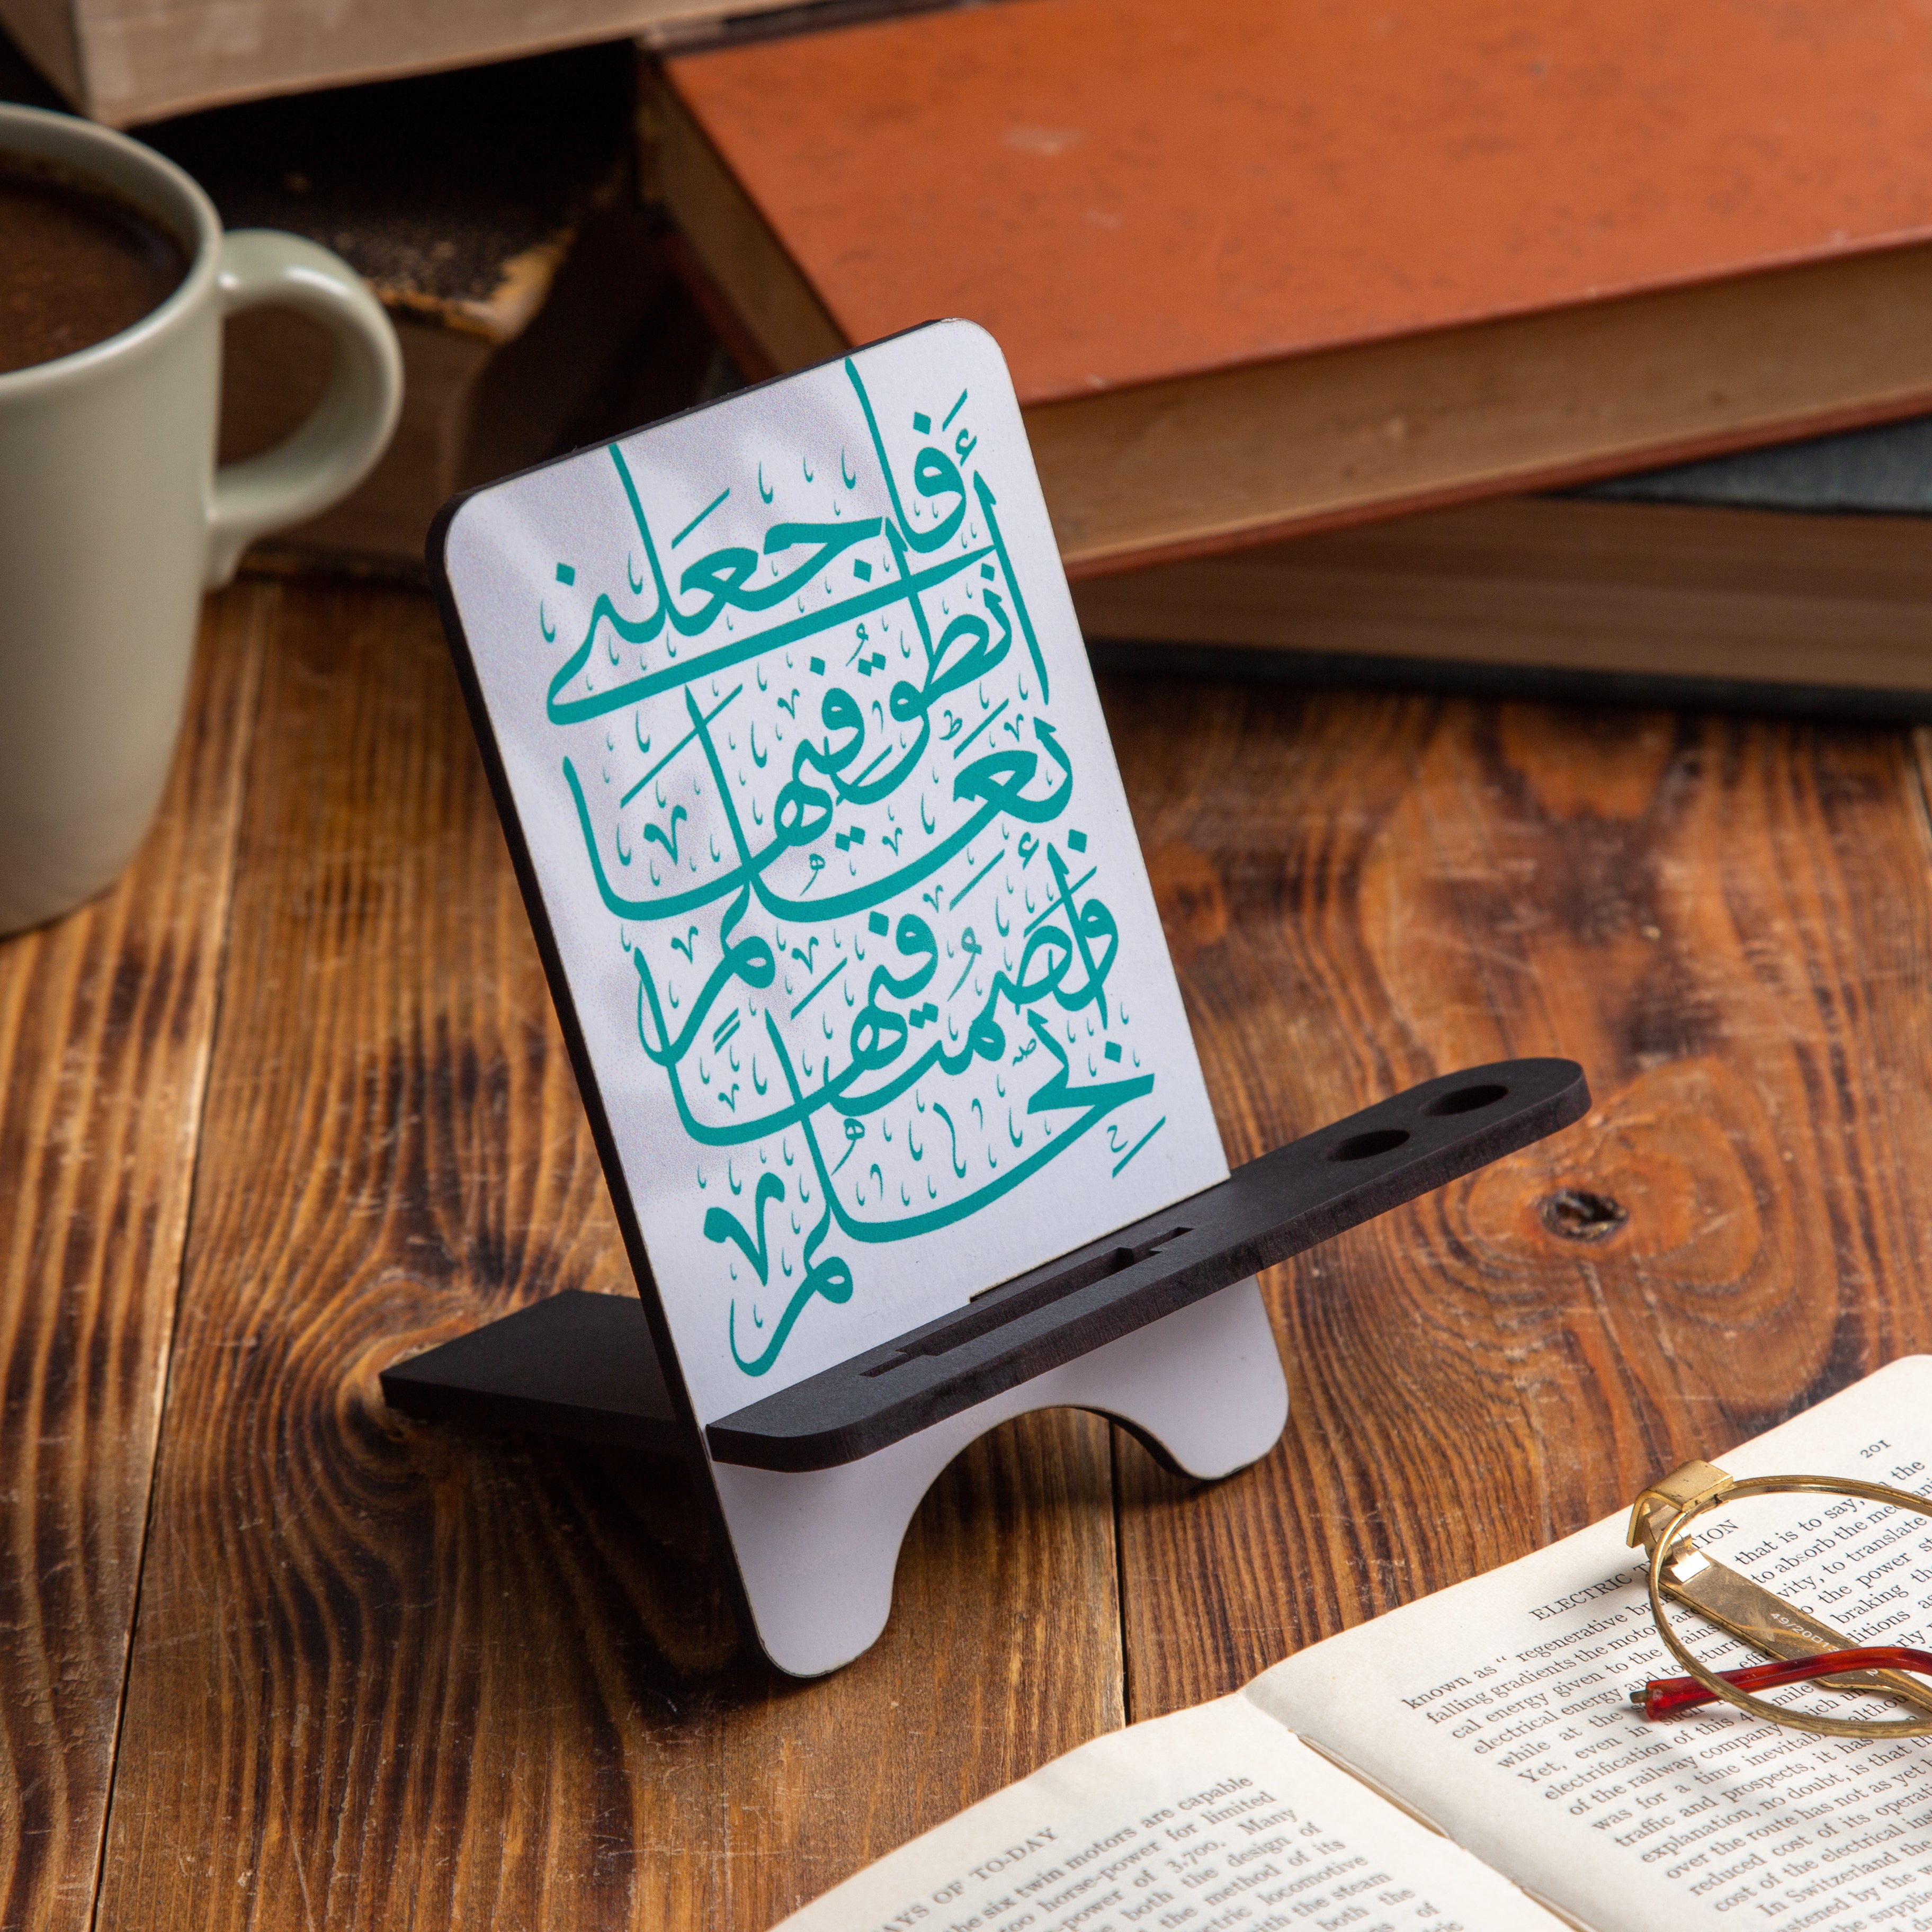 فَاجعلني
أنطقُ فيها
بعَلمٍ
وَأصمتُ فيها
بِحلمٍ
201
ELECTRIC
known as “ regenerative that is to say, the
falling gradients the motors to absorb the
cal energy given to the to translate
electrical energy and to return the power
while at the braking
Yet, even in
electrification of this mile
of the railway company which
was for a time
traffic and prospects, it has
explanation, no doubt, is that
over the route has not as yet
reduced cost of its
cost of the electrical
In Switzerland
by the
OF TO-DAY
six twin motors are capable
horse-power for limited
of 3,700. Many
both the design of
the method of its
locomotive
with the steam
both the
of